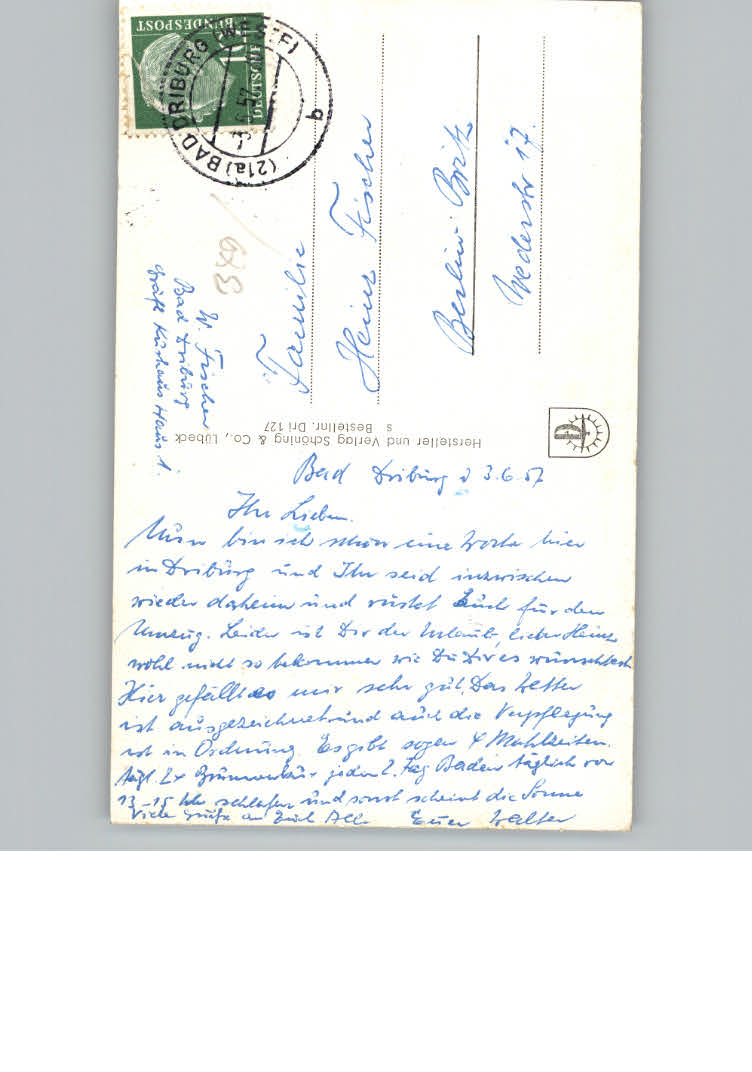 DEUTSCHE
BUNDESPOST
(21a) BAD DRIBURG (WESTF)
3.6.57
b
Familie
Heinz Fischer
Berlin-Britz
Wederstr 17.
W. Fischer
Bad Driburg
Gräfl Kurhaus Haus 1.
Hersteller und Verlag Schöning & Co., Lübeck
s Bestellnr. Dri 127
Bad Driburg d 3.6.57
Ihr Lieben.
Nun bin ich schon eine Woche hier
in Driburg und Ihr seid inzwischen
wieder daheim und rüstet Euch für den
Umzug. Leider ist Dir der Urlaub, lieber Heinz
wohl nicht so bekommen wie Du Dir es wünschtest
Hier gefällt es mir sehr gut. Das Wetter
ist ausgezeichnet und auch die Verpflegung
ist in Ordnung. Es gibt sogar 4 Mahlzeiten.
tägl. 2x jeden 2. Tag Baden täglich von
13-15 Uhr schlafen und sonst scheint die Sonne
Viele Grüße an Euch Alle Euer Walter